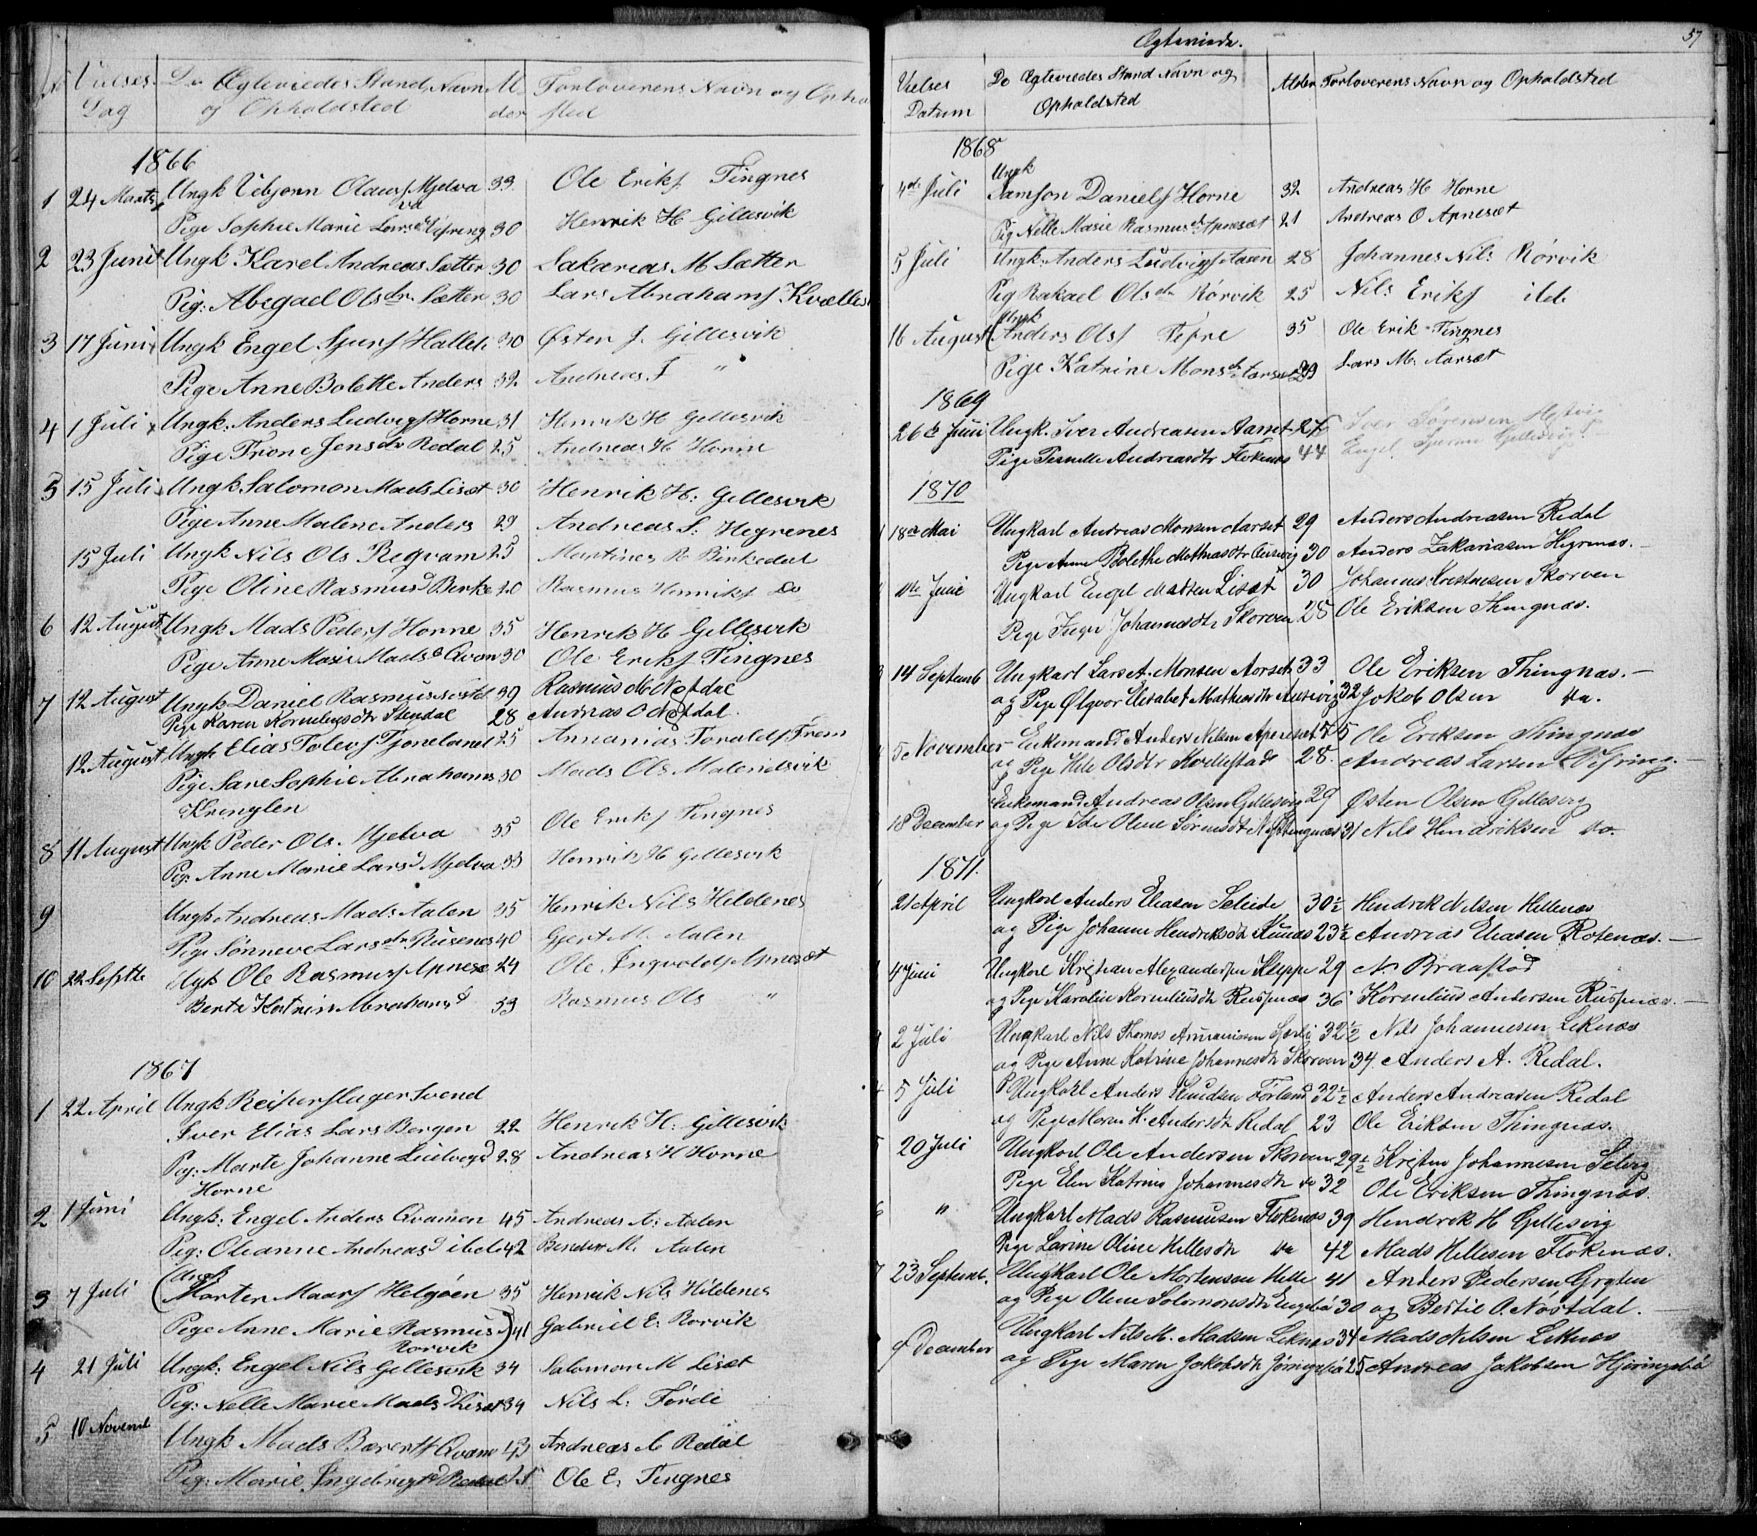 Vielses De Ægteviedes Stand Navn Al Forloverens Navn og Opho
Dag og Opholdsted der sted
1866
1 24 Marts Ungk Olaus Mjelva 33 Ole Eriks Tingnes
Pige Sophie Marie Lars Vefring 30 Henrik H Gillesvik
2 23 Juni Ungk Karel Andreas Sætter 30 Sakarias M Sætter
Pig: Abegael Ols dr Sætter 30 Lars Abrahams Kvelles
3 17 Juni Ungk Engel 30 Østen J. Gillesvik
Pige Anne Bolette Anders 32 Andreas J "
4 1 Juli Ungk: Anders Ludvigs Horne 31 Henrik H Gillesvik
Pige Trone Jens dr Redal 25 Andreas H Horne
5 15 Juli Ungk: Salomon Mads Liset 30 Henrik H: Gillesvik
Pige Anne Malene Anders 29 Andreas S: Hegrenes
15 Juli Ungk Nils Ols Regvam 25 Martines R Birkedal
Pige Oline Rasmus d Birke 20 Rasmus Henriks Do
6 12 August Ungk Mads Peders Horne 35 Henrik H Gillesvik
Pige Anne Marie Mads d Qvam 30 Ole Eriks Tingnes
7 12 August Ungk Daniel Rasmus 39 Rasmus
Pige Karen Kornelius dr Stendal 28
12 August Ungk Elias Tolevs Tjoneland 25 Annanias
Pige Sane Sophie Abrahams 30 Mads Ols
Kringlen
8 11 August Ungk Peder Ols. Mjelva 35 Ole Eriks Tingnes
Pig: Anne Marie Lars d Mjelva 33 Henrik H Gillesvik
9 Ungk Andreas Mads Aalen 35 Henrik Nils Heldenes
Pige Sønneve Lars dr Rusenes 40 Gjert M. Aalen
10 22 Septbr Ugk Ole Rasmus Apnese 24 Ole Ingvolds Apneset
Berte Katrin Abrahams d 33 Rasmus Ols "
1867
1 22 April Ungk Reiperslager Svend
Iver Elias Lars Bergen 22 Henrik H: Gillesvik
Pig: Marte Johanne Ludvigs d 28 Andreas H Horne
Horne
2 1 Juni Ungk: Engel Anders Qvamen 45 Andreas A: Aalen
Pig: Oleanne Andreas d ibd 42 Bendix M. Aalen
Ungk
3 7 Juli Morten Helgøen 35 Henrik Nils Hildenes
Pige Anne Marie Rasmus 41 Gabriel E: Rorvik
Rorvik
4 21 Juli Ungk: Engel Nils Gillesvik 34 Salomon M Liset
Pig: Nelle Marie Mads d Liset 34 Nils L: Førde
5 10 Novemb Ungk Mads Qvam 43 Andreas A Redal
Pig: Marie Ole E. Tingnes
Ægteviede. 57
Vielses De Ægteviedes Stand Navn og Alder Forloverens Navn og Opholdsted
Datum Opholdsted
1868
Ungk
4de Juli Samson Daniels Horne 32 Andreas H Horne
Pig Nelle Marie Rasmus dr Apneset 21 Andreas O Apneset
5 Juli Ungk: Anders Ludvigs Aasen 28 Johannes Nils Rørvik
Pig Rakael Ols dr Rørvik 25 Nils Eriks ibd.
Ungk
16 August Anders Ols 35 Ole Erik Tingnes
Pige Katrine Mons dr Aarsæt 29 Lars M. Aarsæt
1869
26de Juni Ungk. Iver Andreasen Aarset 27 Iver Sørensen
Pige Pernelle Andreasdtr Flokenes 44 Engel Gillesvig
1870
18de Mai Ungkarl Andreas Monsen Aarset 29 Anders Andreasen Redal
Pige Anne Bolethe Mathiasdtr 30 Anders Zakariasen Hegrenæs.
Juni Ungkarl Engel Madsen Liset 30 Johannes Skorven
Pige Inger Johannesdtr Skorven 28 Ole Eriksen Thingnæs.
14 Septemb Ungkarl Lars A. Monsen Aarset 33 Ole Eriksen Thingnæs.
og Pige Elisabet Mathiasdtr 32 Jakob Olsen do.
5 November Enkemand Anders Nilsen Apneset Ole Eriksen Thingnæs
og Pige Olsdtr 28. Andreas Larsen Vefring.
18 December Enkemand Andreas Olsen Gillesvig 29 Østen Olsen Gillesvig
og Pige Oline Sørensdtr 31 Nils Hendriksen do.
1871.
21 April Ungkarl Anders Eliasen Seleide 30½ Hendrik Nilsen Hellenæs
og Pige Johanne Hendriksdtr 23½ Andreas Rotenæs.
4 Juni Ungkarl Kristian Alexandersen Kleppe 29 N. Braastad
og Pige Karoline Korneliusdtr Rusnæs 36 Kornelius Andersen Rusnæs.
2 Juli Ungkarl Nils Thomas 32½ Nils Johannesen Leknæs
og Pige Anne Katrine Johannesdtr Skorven 34 Anders A. Redal.
5 Juli Ungkarl Anders Knudsen Førland 32½ Anders Andreasen Redal
og Pige Maren H. Andersdtr Redal 23 Ole Eriksen Thingnæs.
20 Juli Ungkarl Ole Andersen Skorven 29½ Kristen Johannesen Selvig
Pige Elen Katrine Johannesdtr do 32 Ole Eriksen Thingnæs.
" Ungkarl Mads Rasmusen Flokenæs 39 Hendrik H Gillesvig
Pige Larine Oline Hellesdtr do 42 Mads Hellesen Flokenæs.
23 Septemb. Ungkarl Ole Mortensen Helle 41 Anders Pedersen Gryten
og Pige Oline Solomonsdtr Engebø 30 og Bertil O. Nørstdal.
December Ungkarl Nils M. Madsen Leknæs 34 Mads Nilsen Leknæs
og Pige Maren Jakobsdtr 25 Andreas Jakobsen